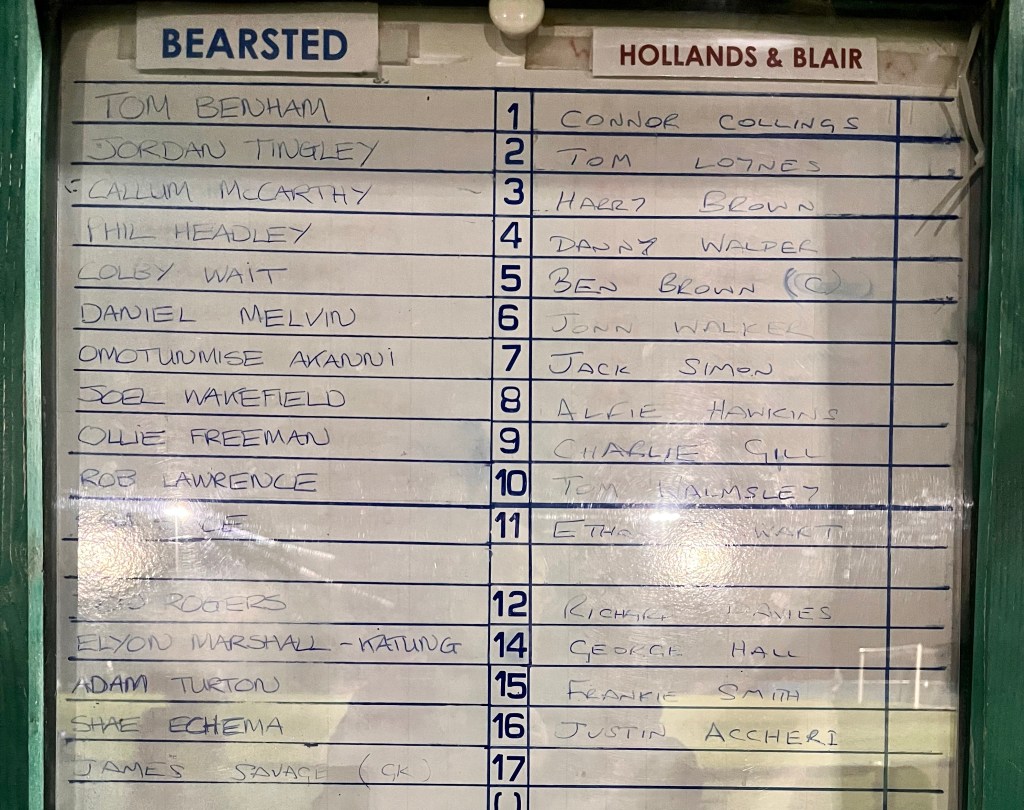 BEARSTED HOLLANDS & BLAIR
TOM BENHAM 1 CONNOR COLLINGS
JORDAN TINGLEY 2 TOM LOYNES
CALLUM McCARTHY 3 HARRY BROWN
PHIL HEADLEY 4 DANNY WALDER
COLBY WAIT 5 BEN BROWN (C)
DANIEL MELVIN 6 JONN WALKER
OMOTUNMISE AKANNI 7 JACK SIMON
JOEL WAKEFIELD 8 ALFIE HAWKINS
OLLIE FREEMAN 9 CHARLIE GILL
ROB LAWRENCE 10 TOM WALMSLEY
11
ROGERS 12 RICHARD DAVIES
ELYON MARSHALL-KATUNG 14 GEORGE HALL
ADAM TURTON 15 FRANKIE SMITH
SHAE ECHEMA 16 JUSTIN ACCHERI
JAMES SAVAGE (GK) 17